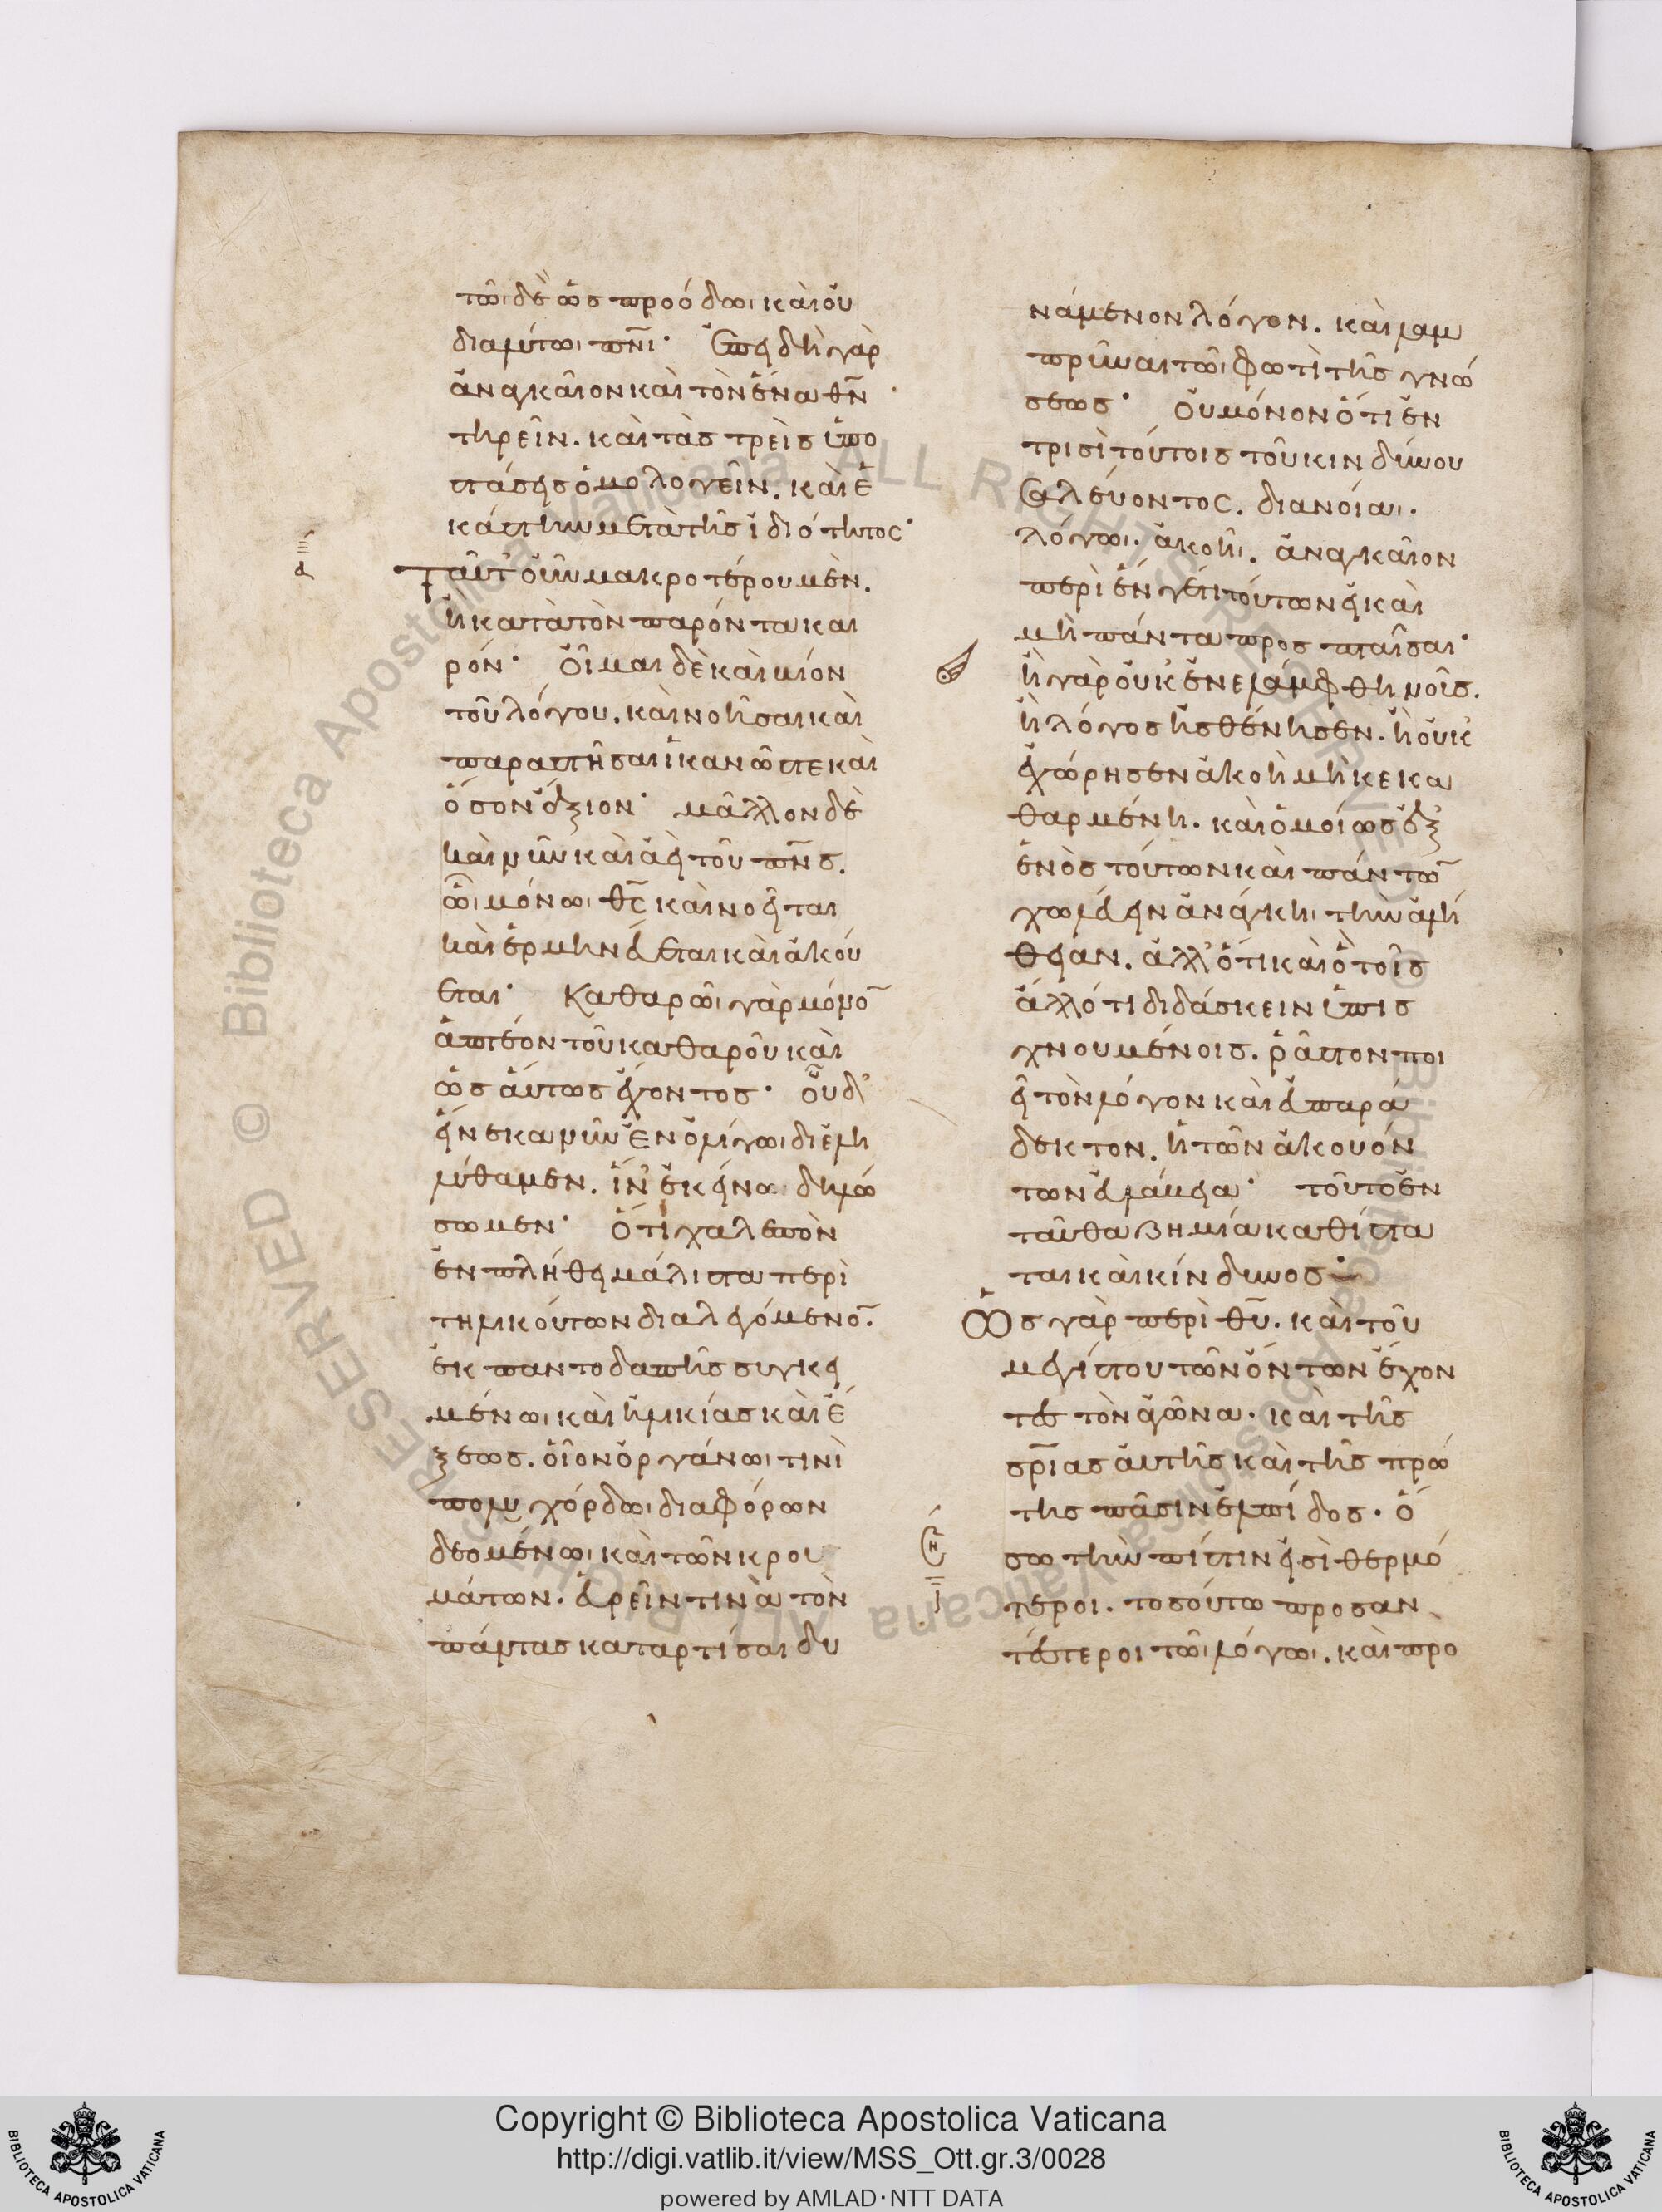 τῶι δὲ ὡς προόδωι καὶ οὐ
διαλύτωι πνι· Ἐπειδὴ γὰρ
ἀναγκαῖον καὶ τὸν ἕνα θν
τηρεῖν. καὶ τὰς τρεῖς ὑπο
στάσεις ὁμολογεῖν. καὶ ἑ
κάστην μετὰ τῆς ἰδιότητος·
Ταῦτ' οὖν μακροτέρου μὲν.
ἢ κατὰ τὸν παρόντα και
ρόν· οἶμαι δὲ καὶ βίον
τοῦ λόγου. καὶ νοῆσαι καὶ
παραστῆσαι ἱκανῶς τε καὶ
ὅσον ἄξιον· μᾶλλον δὲ
καὶ νῦν καὶ ἀεὶ τοῦ πνς.
ὧι μόνωι θς καὶ νοεῖται
καὶ ἑρμηνεύεται καὶ ἀκού
εται· Καθαρῶι γὰρ μόνο
ἁπτέον τοῦ καθαροῦ καὶ
ὡσαύτως ἔχοντος· οὗ δ'
εἵνεκα νῦν ἐν ὀλίγωι διελη
λύθαμεν. ἵν' ἐκεῖνα δηλώ
σωμεν· ὅτι χαλεπὸν
ἐν πλήθει μάλιστα περὶ
τηλικούτων διαλεγόμενο.
ἐκ παντοδαπῆς συγκει
μένωι καὶ ἡλικίας καὶ ἕ
ξεως. οἷον ὀργάνωι τινὶ
πολυχόρδωι διαφόρων
δεομένωι καὶ τῶν κρου
μάτων. εὑρεῖν τινὰ τὸν
πάντας καταρτίσαι δυ
νάμενον λόγον. καὶ λαμ
πρῦναι τῶι φωτὶ τῆς γνώ
σεως· οὐ μόνον ὅτι ἐν
τρισὶ τούτοις τοῦ κινδύνου
σαλεύοντος. διανοίαι.
λόγωι. ἀκοῆι. ἀναγκαῖον
περὶ ἕν γέ τι τούτων εἰ καὶ
μὴ πάντα προσπταῖσαι·
ἢ γὰρ οὐκ ἐνελάμφθη νοῦς.
ἢ λόγος ἠσθένησεν. ἢ οὐκ
ἐχώρησεν ἀκοὴ μὴ κεκα
θαρμένη. καὶ ὁμοίως ἐξ
ἑνὸς τούτων καὶ πάντω
χωλεύειν ἀνάγκηι τὴν ἀλή
θειαν. ἀλλ' ὅτι καὶ ὃ τοῖς
ἄλλό τι διδάσκειν ὑπισ
χνουμένοις. ῥᾶστον ποι
εῖ τὸν λόγον καὶ εὐπαρά
δεκτον. ἡ τῶν ἀκουόν
των εὐλάβεια· τοῦτο ἐν
ταῦθα ζημία καθίστα
ται καὶ κίνδυνος·
Ὡς γὰρ περὶ θυ. καὶ τοῦ
μεγίστου τῶν ὄντων ἔχον
τες τὸν ἀγῶνα. καὶ τῆς
σρίας αὐτῆς καὶ τῆς πρώ
της πᾶσιν ἐλπίδος. ὅ
σω τὴν πίστιν εἰσὶ θερμό
τεροι. τοσούτω προσαν
τέστεροι τῶι λόγωι. καὶ προ
Copyright © Biblioteca Apostolica Vaticana
http://digi.vatlib.it/view/MSS_Ott.gr.3/0028
powered by AMLAD·NTT DATA
BIBLIOTECA APOSTOLICA VATICANA
BIBLIOTECA APOSTOLICA VATICANA